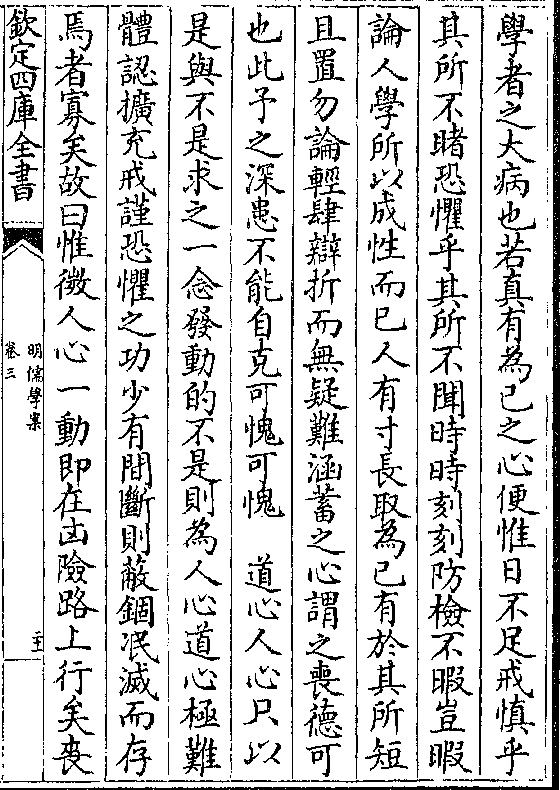 學者之大病也若真有為己之心便惟日不足戒慎乎
其所不睹恐懼乎其所不聞時時刻刻防檢不暇豈暇
論人學所以成性而已人有寸長取為己有於其所短
且置勿論輕肆辯折而無疑難涵蓄之心謂之喪德可
也此予之深患不能自克可愧可愧　道心人心只以
是與不是求之一念發動的不是則為人心道心極難
體認擴充戒謹恐懼之功少有間斷則蔽錮泯滅而存
焉者寡矣故曰惟微人心一動即在凶險路上行矣喪
欽定四庫全書
明儒學案
卷三